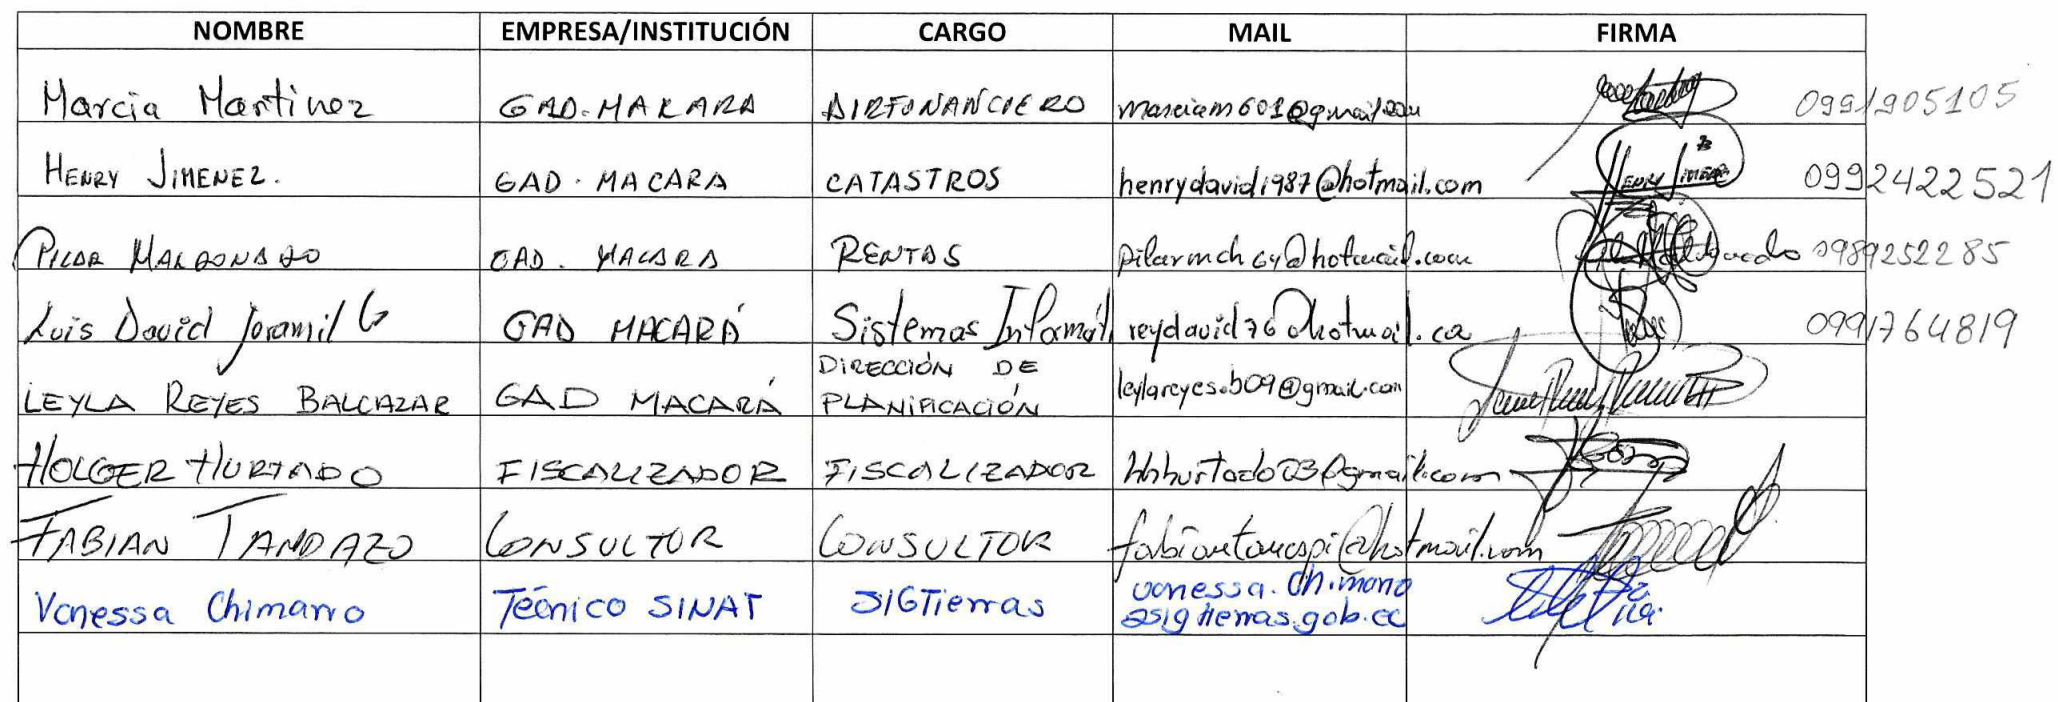 NOMBRE EMPRESA/INSTITUCIÓN CARGO MAIL FIRMA
Marcia Martinez GAD-MAKARA DIRFINANCIERO marciam601@gmail.com 0991905105
HENRY JIMENEZ. GAD. MACARA CATASTROS henrydavid1987@hotmail.com HENRY JIMENEZ 0992422521
PILAR MALDONADO GAD. MACARA RENTAS pilarmch64@hotmail.com 0989252285
Luis David Jaramillo G GAD MACARÁ Sistemas Informát reydavid76@hotmail.ca 0991764819
LEYLA REYES BALCAZAR GAD MACARÁ DIRECCIÓN DE PLANIFICACIÓN leylareyes.b09@gmail.com
HOLGER HURTADO FISCALIZADOR FISCALIZADOR hhhurtado03@gmail.com
FABIAN TANDAZO CONSULTOR CONSULTOR fabiantanespi@hotmail.com
Vanessa Chimarro Técnico SINAT SIGTierras vanessa.chimarro
@sigtierras.gob.ec